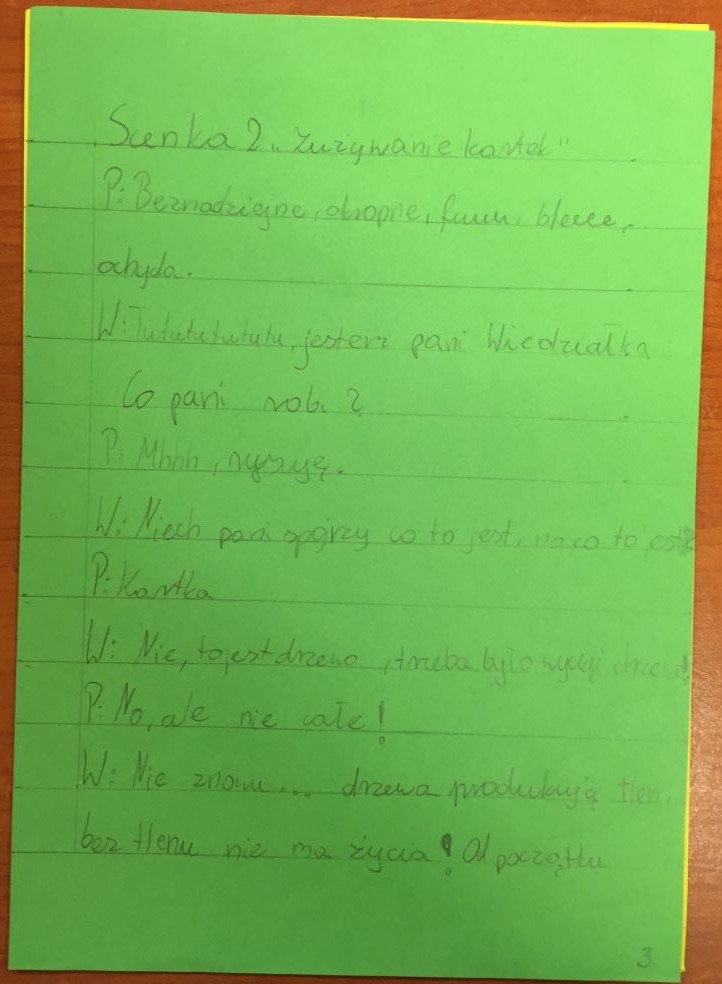 Scenka 2 „Zużywanie kartek"
P: Beznadziejne, okropne, fuuu, bleee,
ochyda.
W: Tutututututu, jestem pani Wiedziałka
Co pani robi?
P: Mhhh, rysuję.
W: Niech pani spójrzy co to jest, no co to jest?
P: Kartka
W: Nie, to jest drzewo, trzeba było wyciąć drzewo!
P: No, ale nie całe!
W: Nie znowu... drzewa produkują tlen,
bez tlenu nie ma życia! Od początku
3